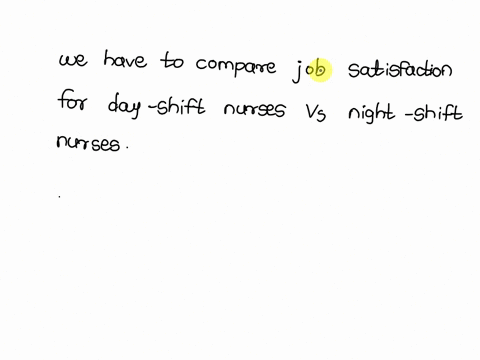 we have to compare job satisfaction
for day-shift nurses Vs night-shift
nurses.